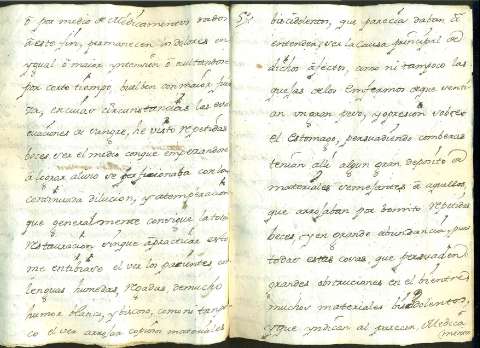 ò por medio de Medicamentos dados
à este fin, permanecen los dolores en
ygual ò maior yntension ò ocultandose
por corto tiempo, buelben con maior fuer
za, en cuias circunstancias las eva
cuaciones de sangre, he visto repetidas
beces ser el medio con que empezandose
à lograr alivio se perficionaba con la
continuada dilucion, y atemperacion
que generalmente consigue la total
restauracion sin que à practicar esto
me entibiase el ver los pacientes con
lenguas humedas, vañadas de mucho
humor blanco, y viscoso, como ni tampo
co el ver arrojar copiosos materiales
52
biscidolentos, que parecia daban à
entender; ser la causa principal de
dichos afectos, como ni tampoco las
quejas de los Enfermos de que sentian
un gran peso, y opresion sobre
el estomago, persuadiendo con beras
tenian alli algun gran deposito de
materiales semejantes à aquellos
que arrojaban por bomito repetidas
beces, y en grande abundancia, pues
todas estas cosas, que persuaden
grandes obstrucciones en el bientre
muchos materiales biscidolentos,
y que yndican al parecer Medica
mentos